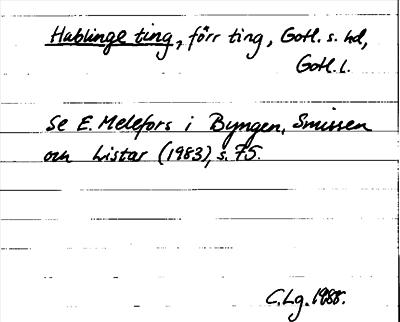 Hablinge ting, förr ting, Gotl. s. hd,
Gotl. l.
Se E. Melefors i Byngen, Smissen
och Listar (1983), s. 75.
C. Lg. 1988.